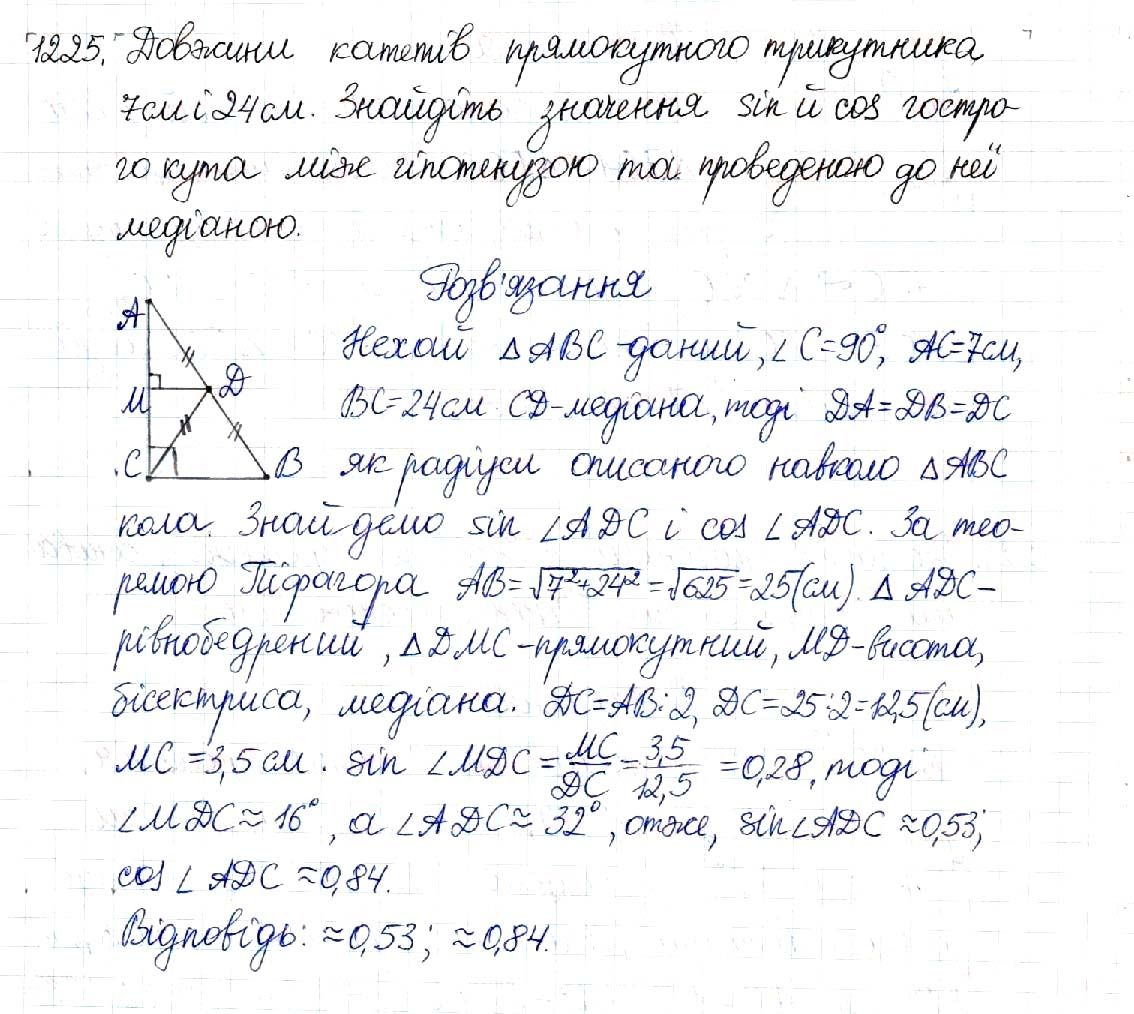 1225. Довжини катетів прямокутного трикутника
7см і 24см. Знайдіть значення sin й cos гостро-
го кута між гіпотенузою та проведеною до неї
медіаною.
Розв'язання
A
M
D
C
B
Нехай △ABC-даний, ∠C=90°, AC=7см,
BC=24см CD-медіана, тоді DA=DB=DC
як радіуси описаного навколо △ABC
кола. Знайдемо sin ∠ADC і cos ∠ADC. За тео-
ремою Піфагора AB=√7²+24²=√625=25(см). △ADC-
рівнобедрений, △DMC-прямокутний, MD-висота,
бісектриса, медіана. DC=AB:2, DC=25:2=12,5(см),
MC=3,5см. sin ∠MDC=MC/DC=3,5/12,5=0,28, тоді
∠MDC≈16°, а ∠ADC≈32°, отже, sin∠ADC≈0,53;
cos∠ADC≈0,84.
Відповідь: ≈0,53; ≈0,84.